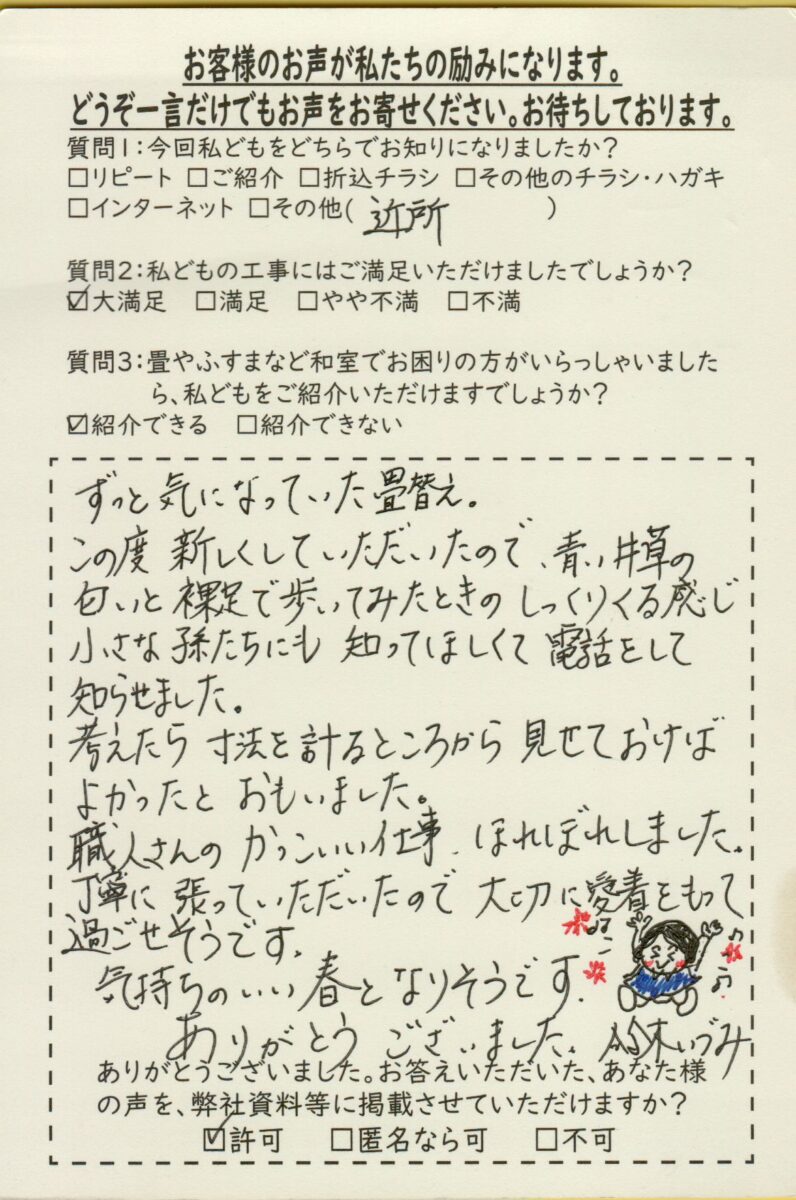 お客様のお声が私たちの励みになります。
どうぞ一言だけでもお声をお寄せください。お待ちしております。
質問1:今回私どもをどちらでお知りになりましたか?
□リピート □ご紹介 □折込チラシ □その他のチラシ・ハガキ
□インターネット □その他( 近所 )
質問2:私どもの工事にはご満足いただけましたでしょうか?
☑大満足 □満足 □やや不満 □不満
質問3:畳やふすまなど和室でお困りの方がいらっしゃいました
ら、私どもをご紹介いただけますでしょうか?
☑紹介できる □紹介できない
ずっと気になっていた畳替え。
この度 新しくしていただいたので、青い井草の
匂いと 裸足で歩いてみたときの しっくりくる感じ
小さな孫たちにも 知ってほしくて 電話をして
知らせました。
考えたら 寸法を計るところから 見せておけば
よかったと おもいました。
職人さんの かっこいい仕事、ほれぼれしました。
丁寧に 張っていただいたので 大切に愛着をもって
過ごせそうです。
気持ちのいい春となりそうです。
ありがとう ございました。 鈴木いづみ
ありがとうございました。お答えいただいた、あなた様
の声を、弊社資料等に掲載させていただけますか?
☑許可 □匿名なら可 □不可